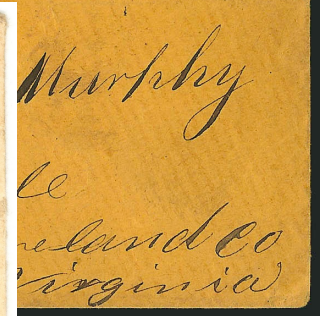 Murphy
le
eland Co
Virginia